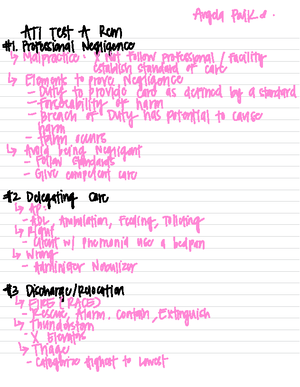 Angela Park
ATI Test A Rem
#1. Professional Negligence
↳ Malpractice: X not follow professional / facility
establish standard of care
↳ Elements to prove negligence
- Duty to provide care as defined by a standard
- Forceability of harm
- Breach of Duty has potential to cause
harm
- Harm occurs
↳ Avoid being negligent
- Follow standards
- Give competent care
#2 Delegating care
↳ AP:
- ADL, Ambulation, Feeding, Toileting
↳ Right
- Client w/ pneumonia use a bedpan
↳ Wrong
- Administer Nebulizer
#3 Discharge/Relocation
↳ FIRE (RACE)
- Rescue, Alarm, Contain, Extinguish
↳ Thunderstorm
- X Elevators
↳ Triage
- Categorize highest to lowest